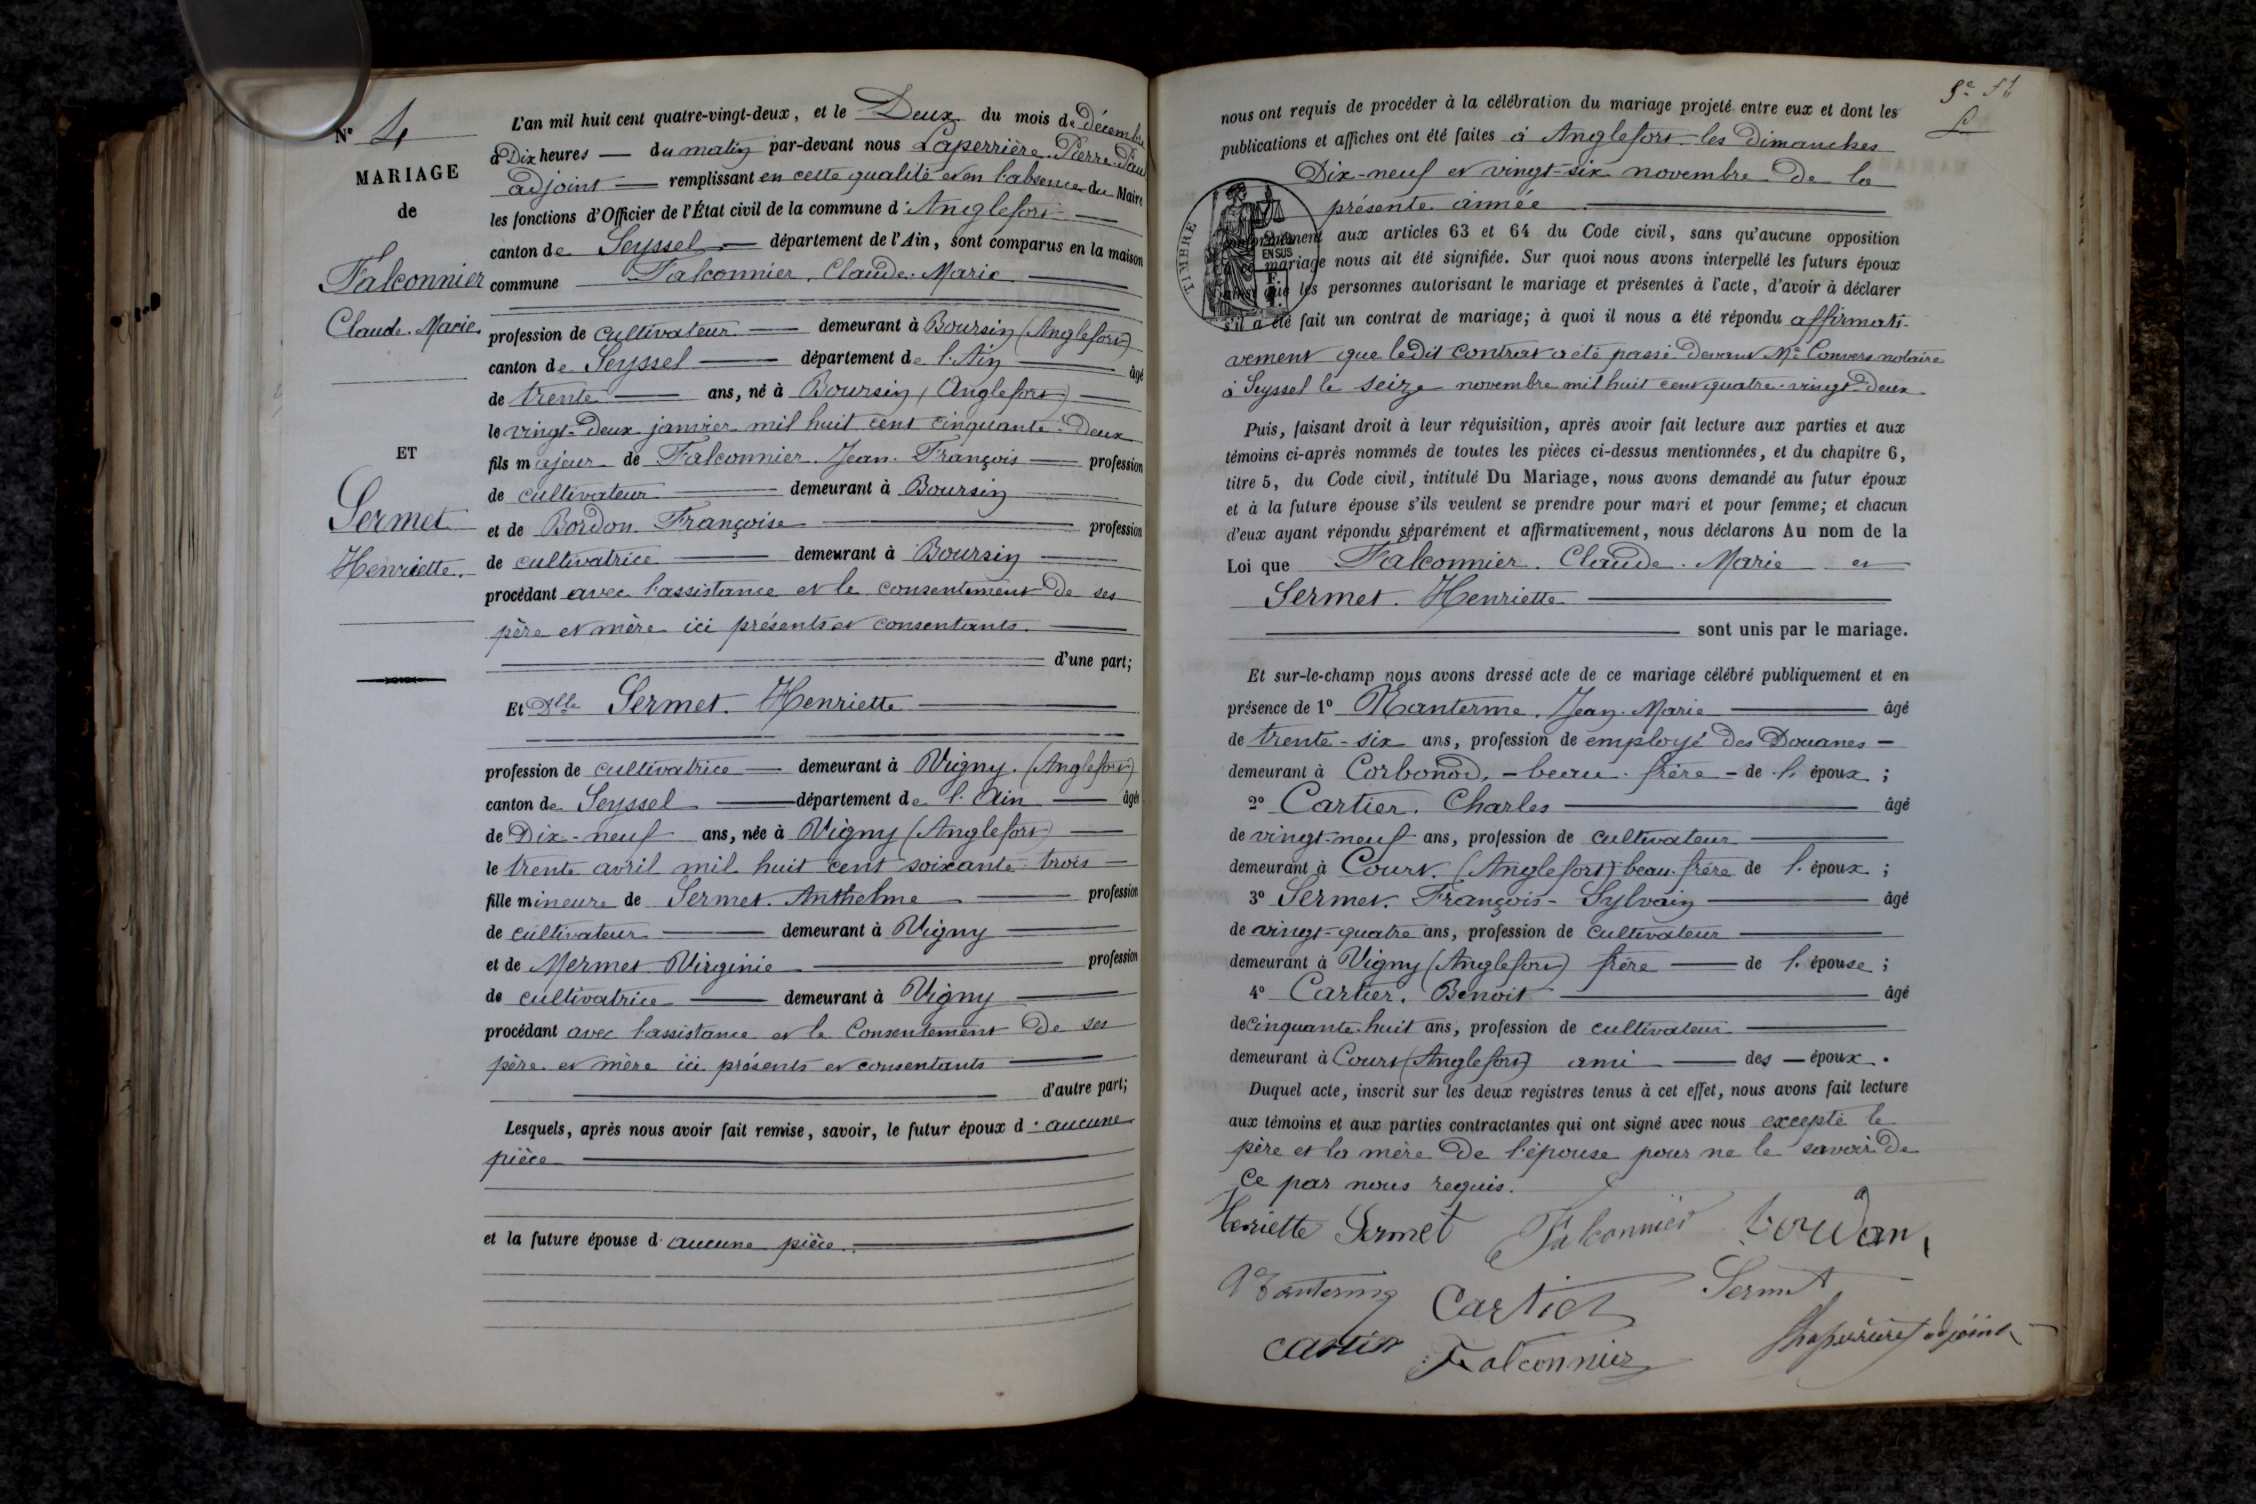 N° 4
MARIAGE
de
Falconnier
Claude Marie
ET
Sermet
Henriette.
L'an mil huit cent quatre-vingt-deux, et le Deux du mois de décembre
à Dix heures — du matin par-devant nous Laperrière Pierre
adjoint — remplissant en cette qualité et en l'absence du Maire
les fonctions d'Officier de l'État civil de la commune d'Anglefort —
canton de Seyssel — département de l'Ain, sont comparus en la maison
commune — Falconnier. Claude. Marie —
profession de cultivateur — demeurant à Boursin (Anglefort)
canton de Seyssel — département de l'Ain — âgé
de trente — ans, né à Boursin (Anglefort) —
le vingt-deux janvier mil huit cent cinquante-deux
fils majeur de Falconnier. Jean. François — profession
de cultivateur — demeurant à Boursin —
et de Bordon Françoise — profession
de cultivatrice — demeurant à Boursin —
procédant avec l'assistance et le consentement de ses
père et mère ici présents et consentants. —
— d'une part;
Et Dlle Sermet. Henriette —
profession de cultivatrice — demeurant à Vigny. (Anglefort)
canton de Seyssel — département de l'Ain — âgée
de Dix-neuf ans, née à Vigny (Anglefort) —
le trente avril mil huit cent soixante-trois —
fille mineure de Sermet. Anthelme — profession
de cultivateur — demeurant à Vigny —
et de Mermet Virginie — profession
de cultivatrice — demeurant à Vigny —
procédant avec l'assistance et le Consentement de ses
père et mère ici présents et consentants —
— d'autre part;
Lesquels, après nous avoir fait remise, savoir, le futur époux d'aucune
pièce —
et la future épouse d'aucune pièce. —
nous ont requis de procéder à la célébration du mariage projeté entre eux et dont les
publications et affiches ont été faites à Anglefort les dimanches
Dix-neuf et vingt-six novembre de la
présente année —
TIMBRE
EN SUS
conformément aux articles 63 et 64 du Code civil, sans qu'aucune opposition
mariage nous ait été signifiée. Sur quoi nous avons interpellé les futurs époux
ainsi que les personnes autorisant le mariage et présentes à l'acte, d'avoir à déclarer
s'il a été fait un contrat de mariage; à quoi il nous a été répondu affirmati-
vement que ledit contrat a été passé devant Me Convers notaire
à Seyssel le seize novembre mil huit cent quatre-vingt-deux
Puis, faisant droit à leur réquisition, après avoir fait lecture aux parties et aux
témoins ci-après nommés de toutes les pièces ci-dessus mentionnées, et du chapitre 6,
titre 5, du Code civil, intitulé Du Mariage, nous avons demandé au futur époux
et à la future épouse s'ils veulent se prendre pour mari et pour femme; et chacun
d'eux ayant répondu séparément et affirmativement, nous déclarons Au nom de la
Loi que Falconnier. Claude. Marie et
Sermet. Henriette —
— sont unis par le mariage.
Et sur-le-champ nous avons dressé acte de ce mariage célébré publiquement et en
présence de 1° Nanterme. Jean. Marie — âgé
de trente-six ans, profession de employé des Douanes —
demeurant à Corbonod, — beau-frère — de l'époux;
2° Cartier. Charles — âgé
de vingt-neuf ans, profession de cultivateur —
demeurant à Court. (Anglefort) beau-frère de l'époux;
3° Sermet. François-Sylvain — âgé
de vingt-quatre ans, profession de cultivateur —
demeurant à Vigny (Anglefort) frère — de l'épouse;
4° Cartier. Benoit — âgé
de cinquante-huit ans, profession de cultivateur —
demeurant à Court (Anglefort) ami — des — époux.
Duquel acte, inscrit sur les deux registres tenus à cet effet, nous avons fait lecture
aux témoins et aux parties contractantes qui ont signé avec nous excepté le
père et la mère de l'épouse pour ne le savoir de
ce par nous requis.
Henriette Sermet Falconnier bordon
Nanterme Cartier Sermet
cartier Falconnier Laperrière adjoint